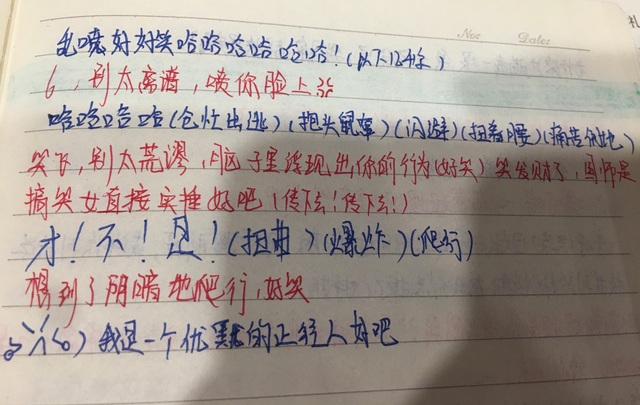 No: Date:
札
好好笑哈哈哈哈哈哈!(以下12
6,别太离谱,喷你脸上
哈哈哈哈(仓忙出逃)(抱头鼠窜)(闪避)(扭着腰)(痛
笑下,别太荒谬,脑子里浮现出,你的行为(好笑)笑发财了,国师是
搞笑女直接实捶好吧(传下去!传下去!)
才!不!是!(扭曲)(爆炸)(爬行)
想到了阴暗地爬行,好笑
我是一个优雅的正经人好吧